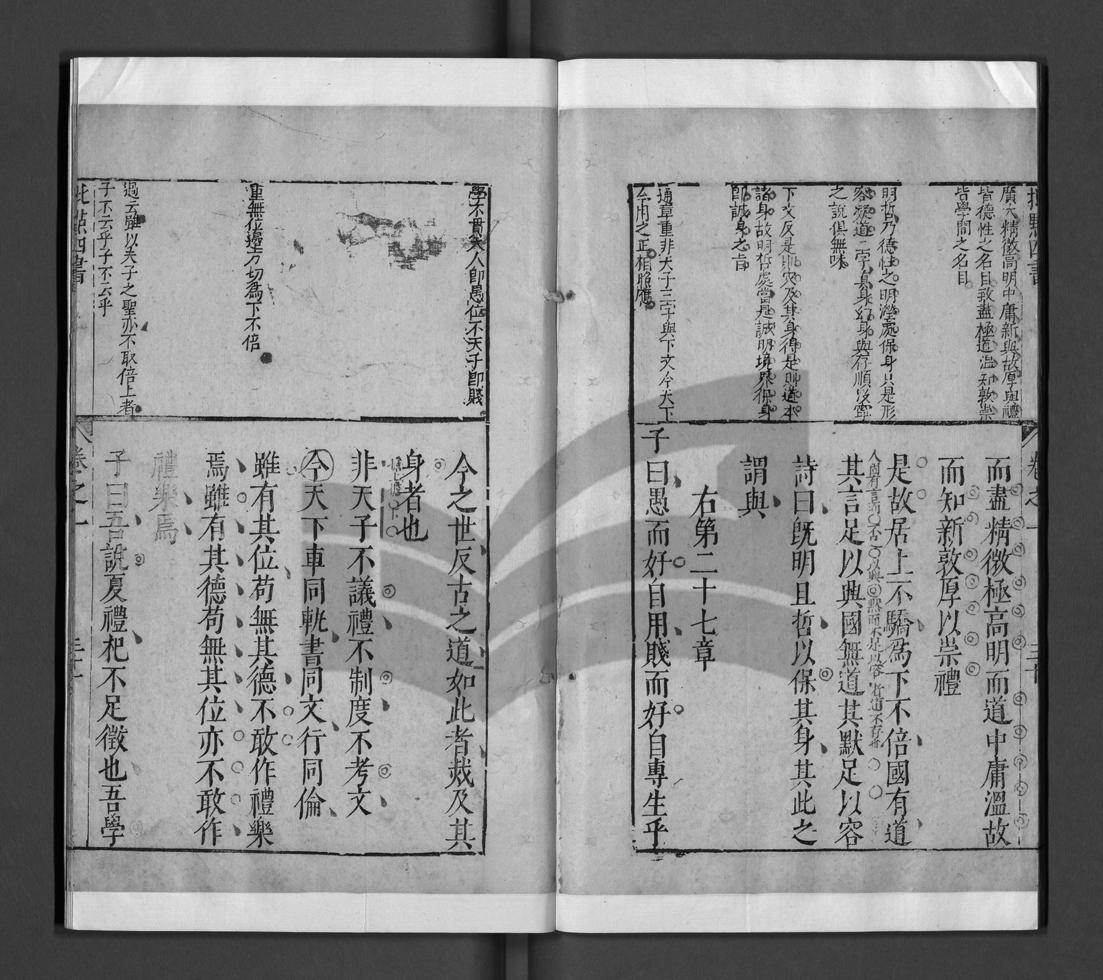 廣大精微高明中庸新與故厚與禮
皆德性之名目致盡極道溫知敦崇
皆學問之名目
明哲乃德性之明瀅處保身只是形
之說俱無味
下文反是則烖及其身得是聊道本
諸身故明哲處當是誠明境界保身
卽誠身之旨
通章重非天子三字與下文今天下
今用之正相照應
而盡精微極高明而道中庸溫故
而知新敦厚以崇禮
是故居上不驕為下不倍國有道
其言足以興國無道其默足以容
詩曰既明且哲以保其身其此之
謂與
右第二十七章
子曰愚而好自用賤而好自專生乎
學不貫天人即愚位不天子即賤
重無位邊方切為下不倍
過云雖以夫子之聖亦不取倍上者
子不云乎子不云乎
今之世反古之道如此者烖及其
身者也
非天子不議禮不制度不考文
今天下車同軌書同文行同倫
雖有其位苟無其德不敢作禮樂
焉雖有其德苟無其位亦不敢作
禮樂焉
子曰吾說夏禮杞不足徵也吾學
批點四書
卷之一